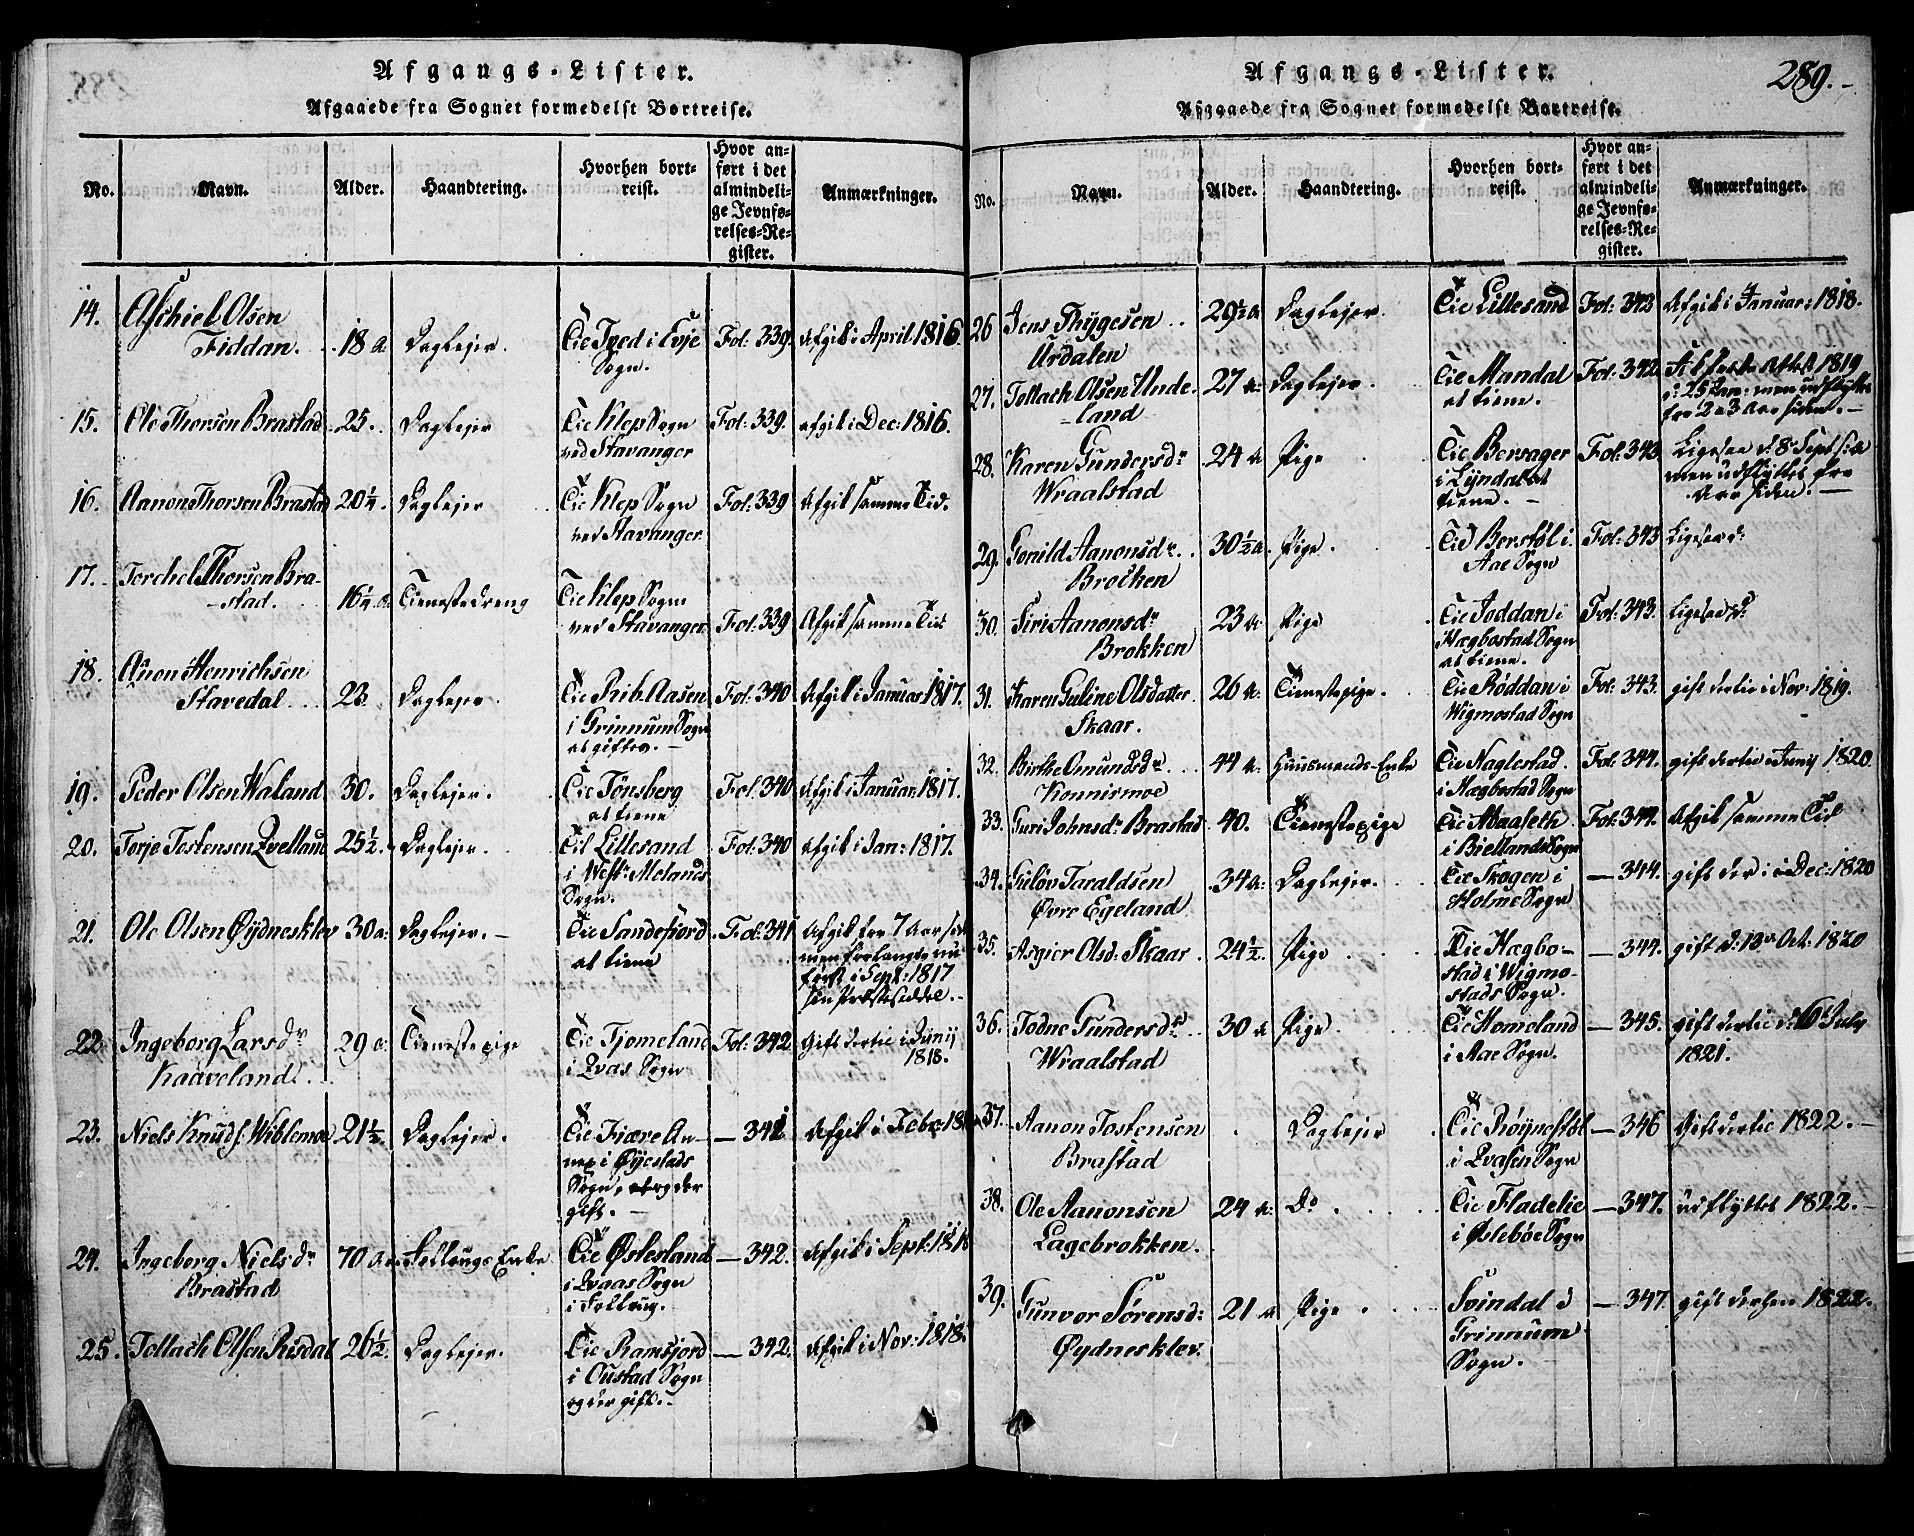 Afgangs-Lister.
Afgaaede fra Sognet formedelst Bortreise.
No. Navn. Alder. Haandtering. Hvorhen bortreist. Hvor anført i det almindelige Jevnførelses-Register. Anmærkninger.
14. Aschiel Olsen Fiddan. 18 a Dagleier. Til Tved i Evje Sogn. Fol: 339. Afgik i April 1816.
15. Ole Thorsen Brastad 25. Dagleier Til Klep Sogn ved Stavanger Fol: 339. afgik i Dec: 1816.
16. Aanon Thorsen Brastad 20¼. Dagleier Til Klep Sogn ved Stavanger Fol: 339 Afgik samme Tid.
17. Torchel Thorsen Brastad. 16¼ a. Tienestedreng Til Klep Sogn ved Stavanger Fol: 339 Afgik samme Tid
18. Anon Henrichsen Stavedal 23. Dagleier. Til Rib. Aasen i Grinnum Sogn at giftes. Fol: 340 Afgik i Januar 1817.
19. Peder Olsen Waland 30. Dagleier. Til Tønsberg at tiene Fol: 340 Afgik i Januar 1817.
20. Torje Tostensen Qvelland 25½. Dagleier. Til Lillesand i Westr. Melands Sogn. Fol: 340 Afgik i Jan: 1817.
21. Ole Olsen Øydnesklev 30 a: Dagleier. Til Sandefiord at tiene Fol: 341 Afgik for 7 Aar sid men forlangte nu først i Sept: 1817 sin Præsteseddel.
22. Ingeborg Larsdr Kaaveland. 29 a: Tienestepige Til Tjomeland i Qvas Sogn Fol: 342 Gift dertil i Junij 1818.
23. Niels Knuds. Wiblemoe 21½. Dagleier. Til Fjære Annex i Øyestads Sogn, og der gift. — 342 Afgik i Febr: 18
24. Ingeborg Nielsdr Brastad 70 a Follougs Enke Til Østesland i Qvaas Sogn i Folloug. — 342. Afgik i Sept: 1818
25. Tollach Olsen Risdal 26½. Dagleier. Til Ramsjord i Oustad Sogn og der gift. — 342. Afgik i Nov: 1818.
Afgangs-Lister. 289.
Afgaaede fra Sognet formedelst Bortreise.
No. Navn. Alder. Haandtering. Hvorhen bortreist. Hvor anført i det almindelige Jevnførelses-Register. Anmærkninger.
26 Jens Thygesen Urdalen 29½ a Dagleier. Til Lillesand Fol: 343 Afgik i Januar: 1818.
27. Tollach Olsen Undeland 27 a: Dagleier. Til Mandal at tiene. Fol: 342 1819 d: 25 Jan: men udflyttet for 2 a 3 Aar siden.
28. Karen Gundersdr Wraalstad 24 a Pige Til Bersager i Lyndal at tiene. Fol: 343 Ligesaa d. 8 Sept: s: a men udflyttet for Aar siden.
29. Gonild Aanonsdr. Brocken 30½ a. Pige. Til Berstøl i Aae Sogn Fol: 343 Ligesaa
30. Siri Aanonsdr Brokken 23 a: Pige Til Joddan i Hægbostad Sogn at tiene. Fol: 343. Ligesaa
31. Karen Guline Olsdatter Skaar. 26 a: Tienestepige. Til Røddan i Wigmostad Sogn Fol: 343. gift dertil i Nov: 1819.
32. Birthe Omundsdr Konnismoe 44 a: Huusmands-Enke Til Naglestad i Hægbostad Sogn Fol: 344. gift dertil i Junij 1820
33. Guri Johnsdr Brastad 40. Tienestepige Til Maaseth i Biellands Sogn Fol: 344. Afgik samme Tid
34. Guløv Taraldsen Øvre Egeland 34 a: Dagleier. Til Skogen i Holme Sogn — 344. gift der i Dec: 1820
35. Asgier Olsd: Skaar 24½. Pige Til Hægbostad i Wigmostads Sogn. — 344. gift d: 13 Oct: 1820
36. Todne Gundersdr Wraalstad 30 a Pige. Til Homeland i Aae Sogn. — 345. gift dertil d: July 1821.
37. Aanon Tostensen Brastad Dagleier Til Røynestøl i Qvasen Sogn — 346 Gift dertil 1822.
38. Ole Aanonsen Lagebrokken. 24 a: Do Til Fladelie i Øslebøe Sogn — 347. udflyttet 1822.
39. Gunvor Sørensd: Øydnesklev. 21 a Pige Svindal i Grinnum Sogn. — 347 gift derhen 1822.